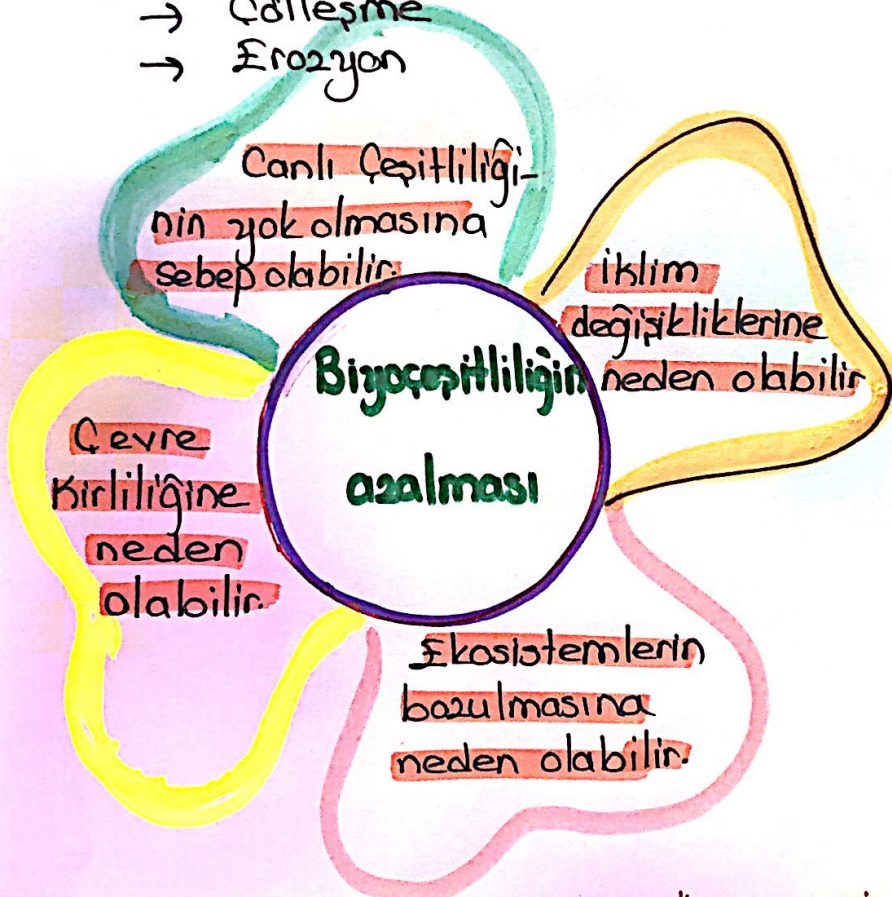 → Çölleşme
→ Erozyon
Canlı Çeşitliliği-
nin yok olmasına
sebep olabilir.
İklim
değişikliklerine
neden olabilir
Biyoçeşitliliğin
azalması
Çevre
Kirliliğine
neden
olabilir.
Ekosistemlerin
bozulmasına
neden olabilir.